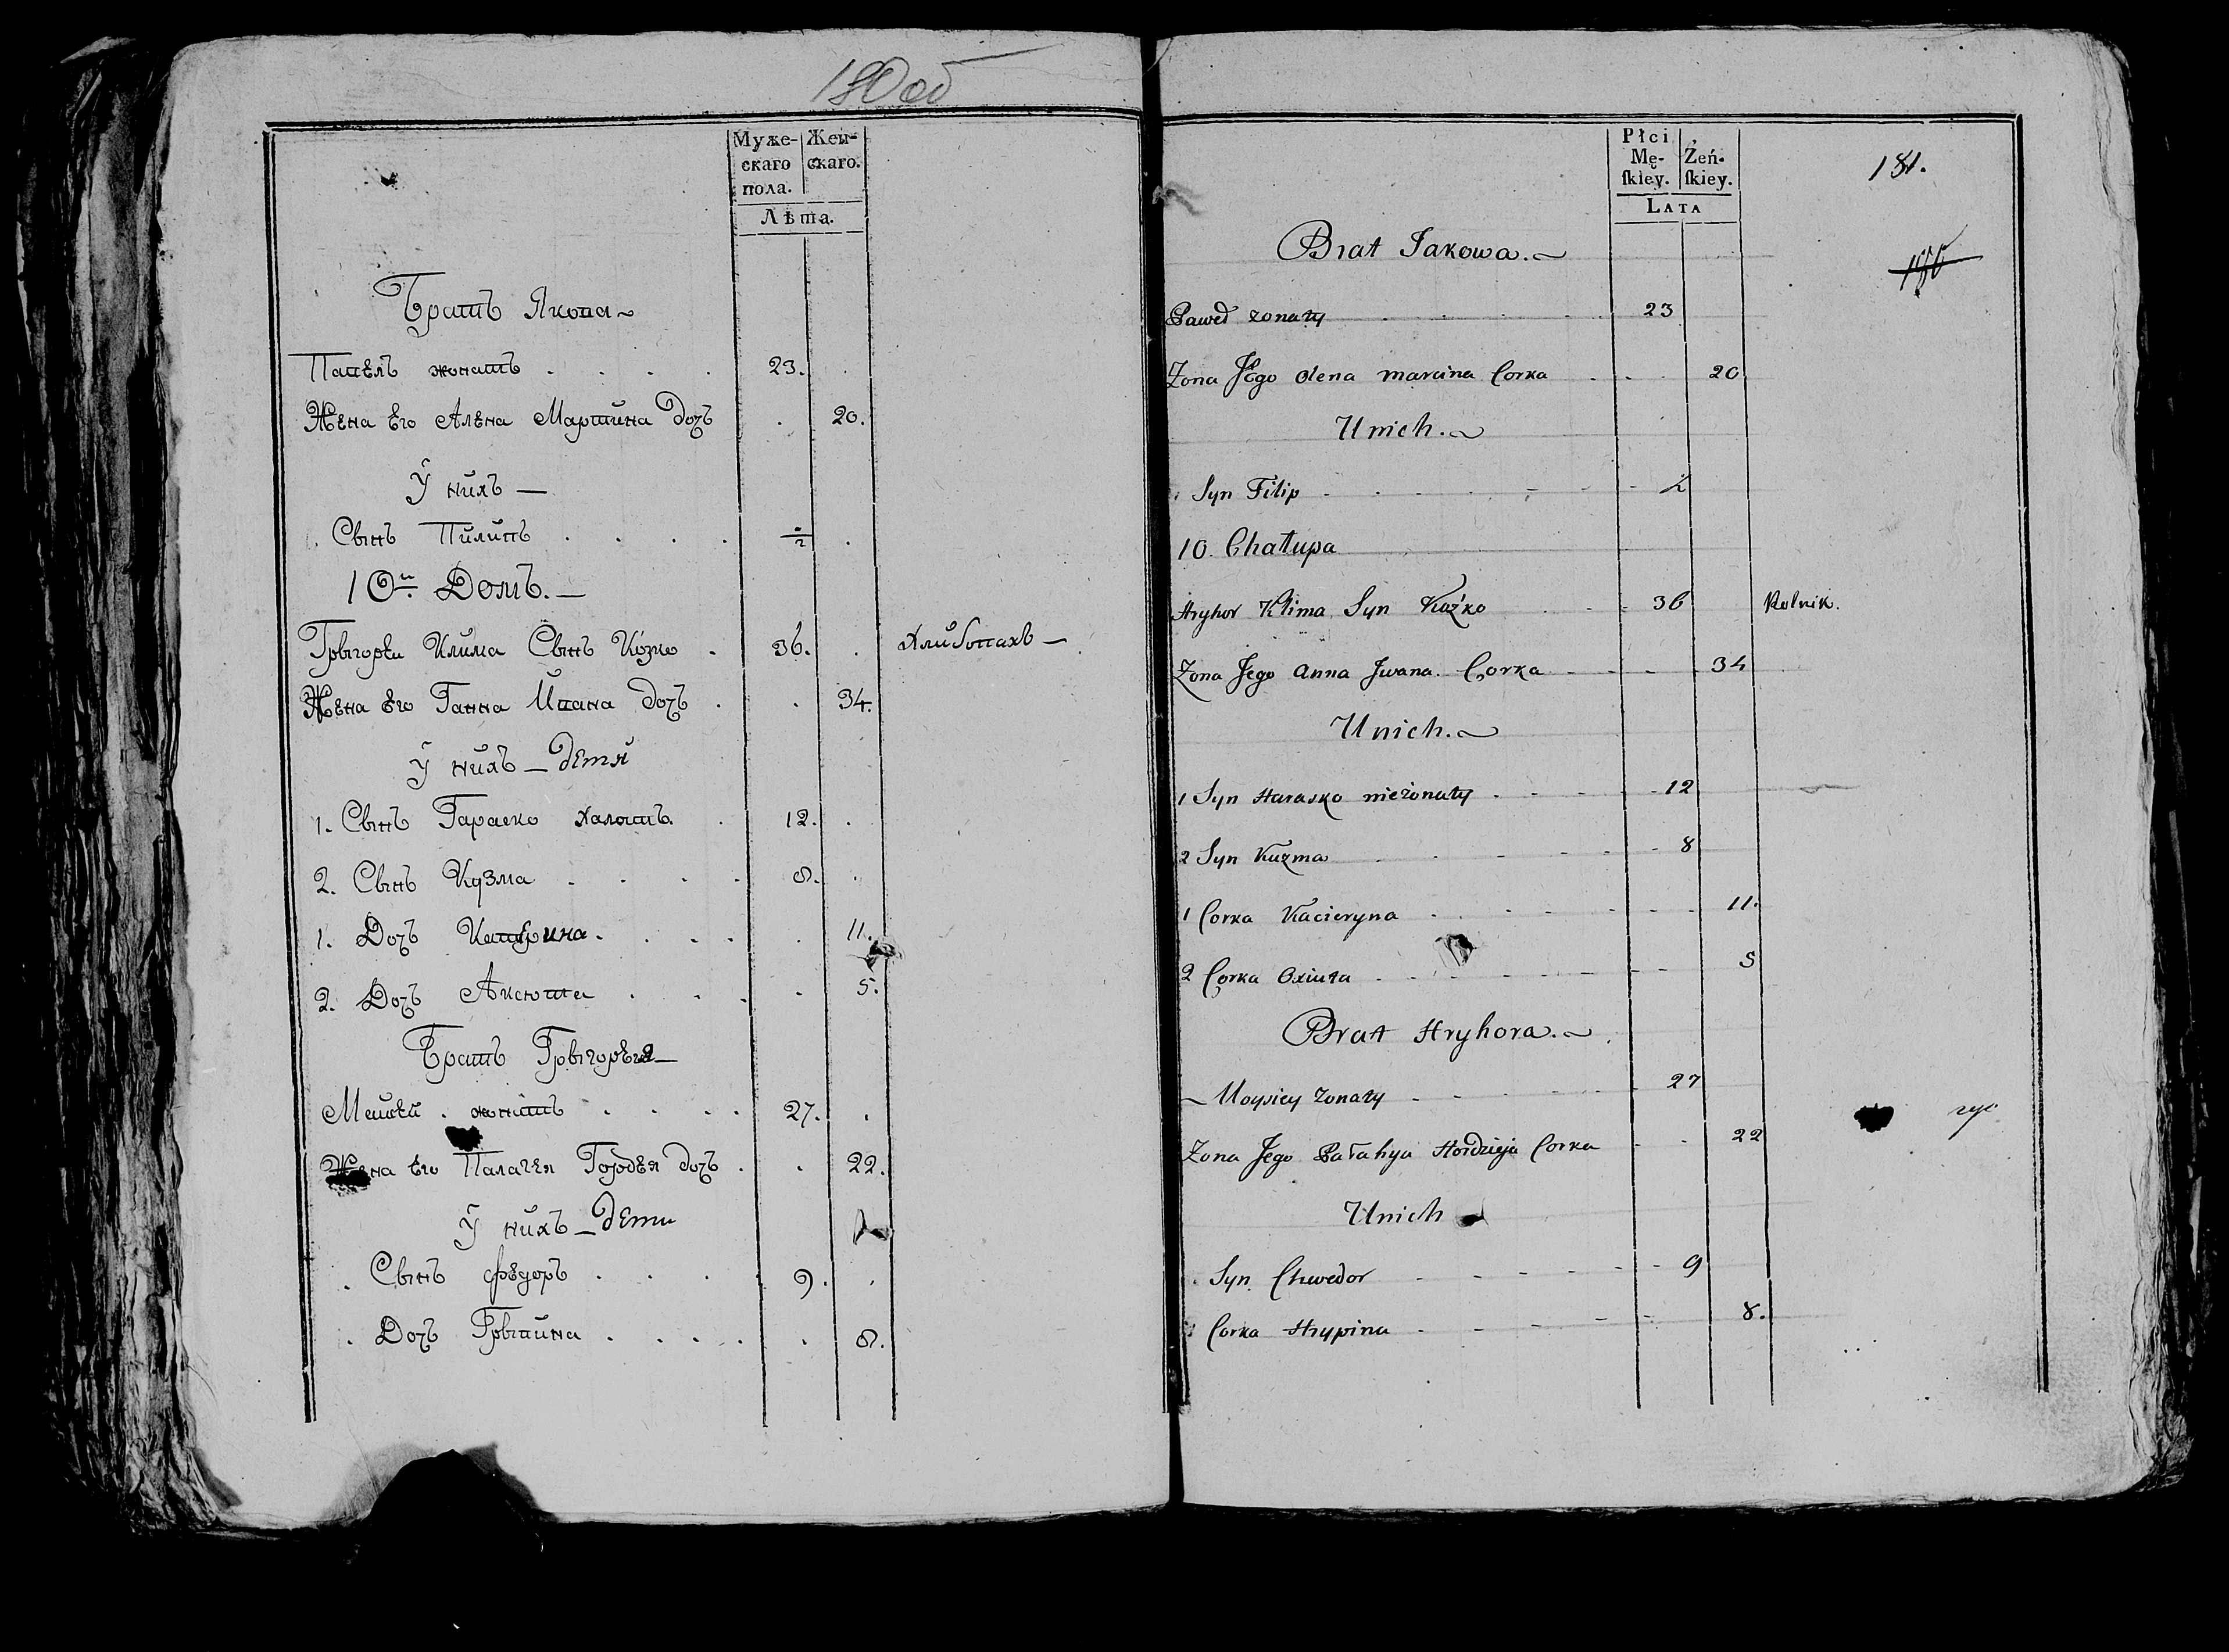 180 об
Муже- Жен-
скаго скаго.
пола.
Лѣта.
Братъ Якова
Павелъ жонатъ . . . . 23. .
Жена Его Алена Мартина дочъ . 20.
У нихъ
Сынъ Пилипъ . . . . ½ .
10й. Домъ.
Грыгорей Клима Сынъ Козко . 36. . Хлибопахъ
Жена Его Ганна Ивана дочъ . . 34.
У нихъ дети
1. Сынъ Гараско халостъ . 12. .
2. Сынъ Кузма . . . . 8. .
1. Дочъ Катерина . . . . . 11.
2. Дочъ Аксюта . . . . 5.
Братъ Грыгорея
Мойсей . жонатъ . . . . 27. .
Жена Его Палагея Гордея дочъ . . 22.
У нихъ дети
. Сынъ Федоръ . . . 9. .
. Дочъ Грыпина . . . . . 8.
Płci
Mę- Żeń-
ſkiey. ſkiey.
LATA
181.
Brat Jakowa.
Paweł zonaty 23
Zona Jego Olena Marcina Corka 20
Unich.
Syn Filip ½
10. Chałupa
Hryhor Klima Syn Kuźko 36 Rolnik.
Zona Jego Anna Jwana Corka 34
Unich.
1 Syn Harasko nieżonaty 12
2 Syn Kuzma 8
1 Corka Kacieryna 11.
2 Corka Oxiuta 5
Brat Hryhora.
Moysiey zonaty 27
Zona Jego Pałahya Hordzieja Corka 22
Unich
Syn Chwedor 9
Corka Hrypina 8.